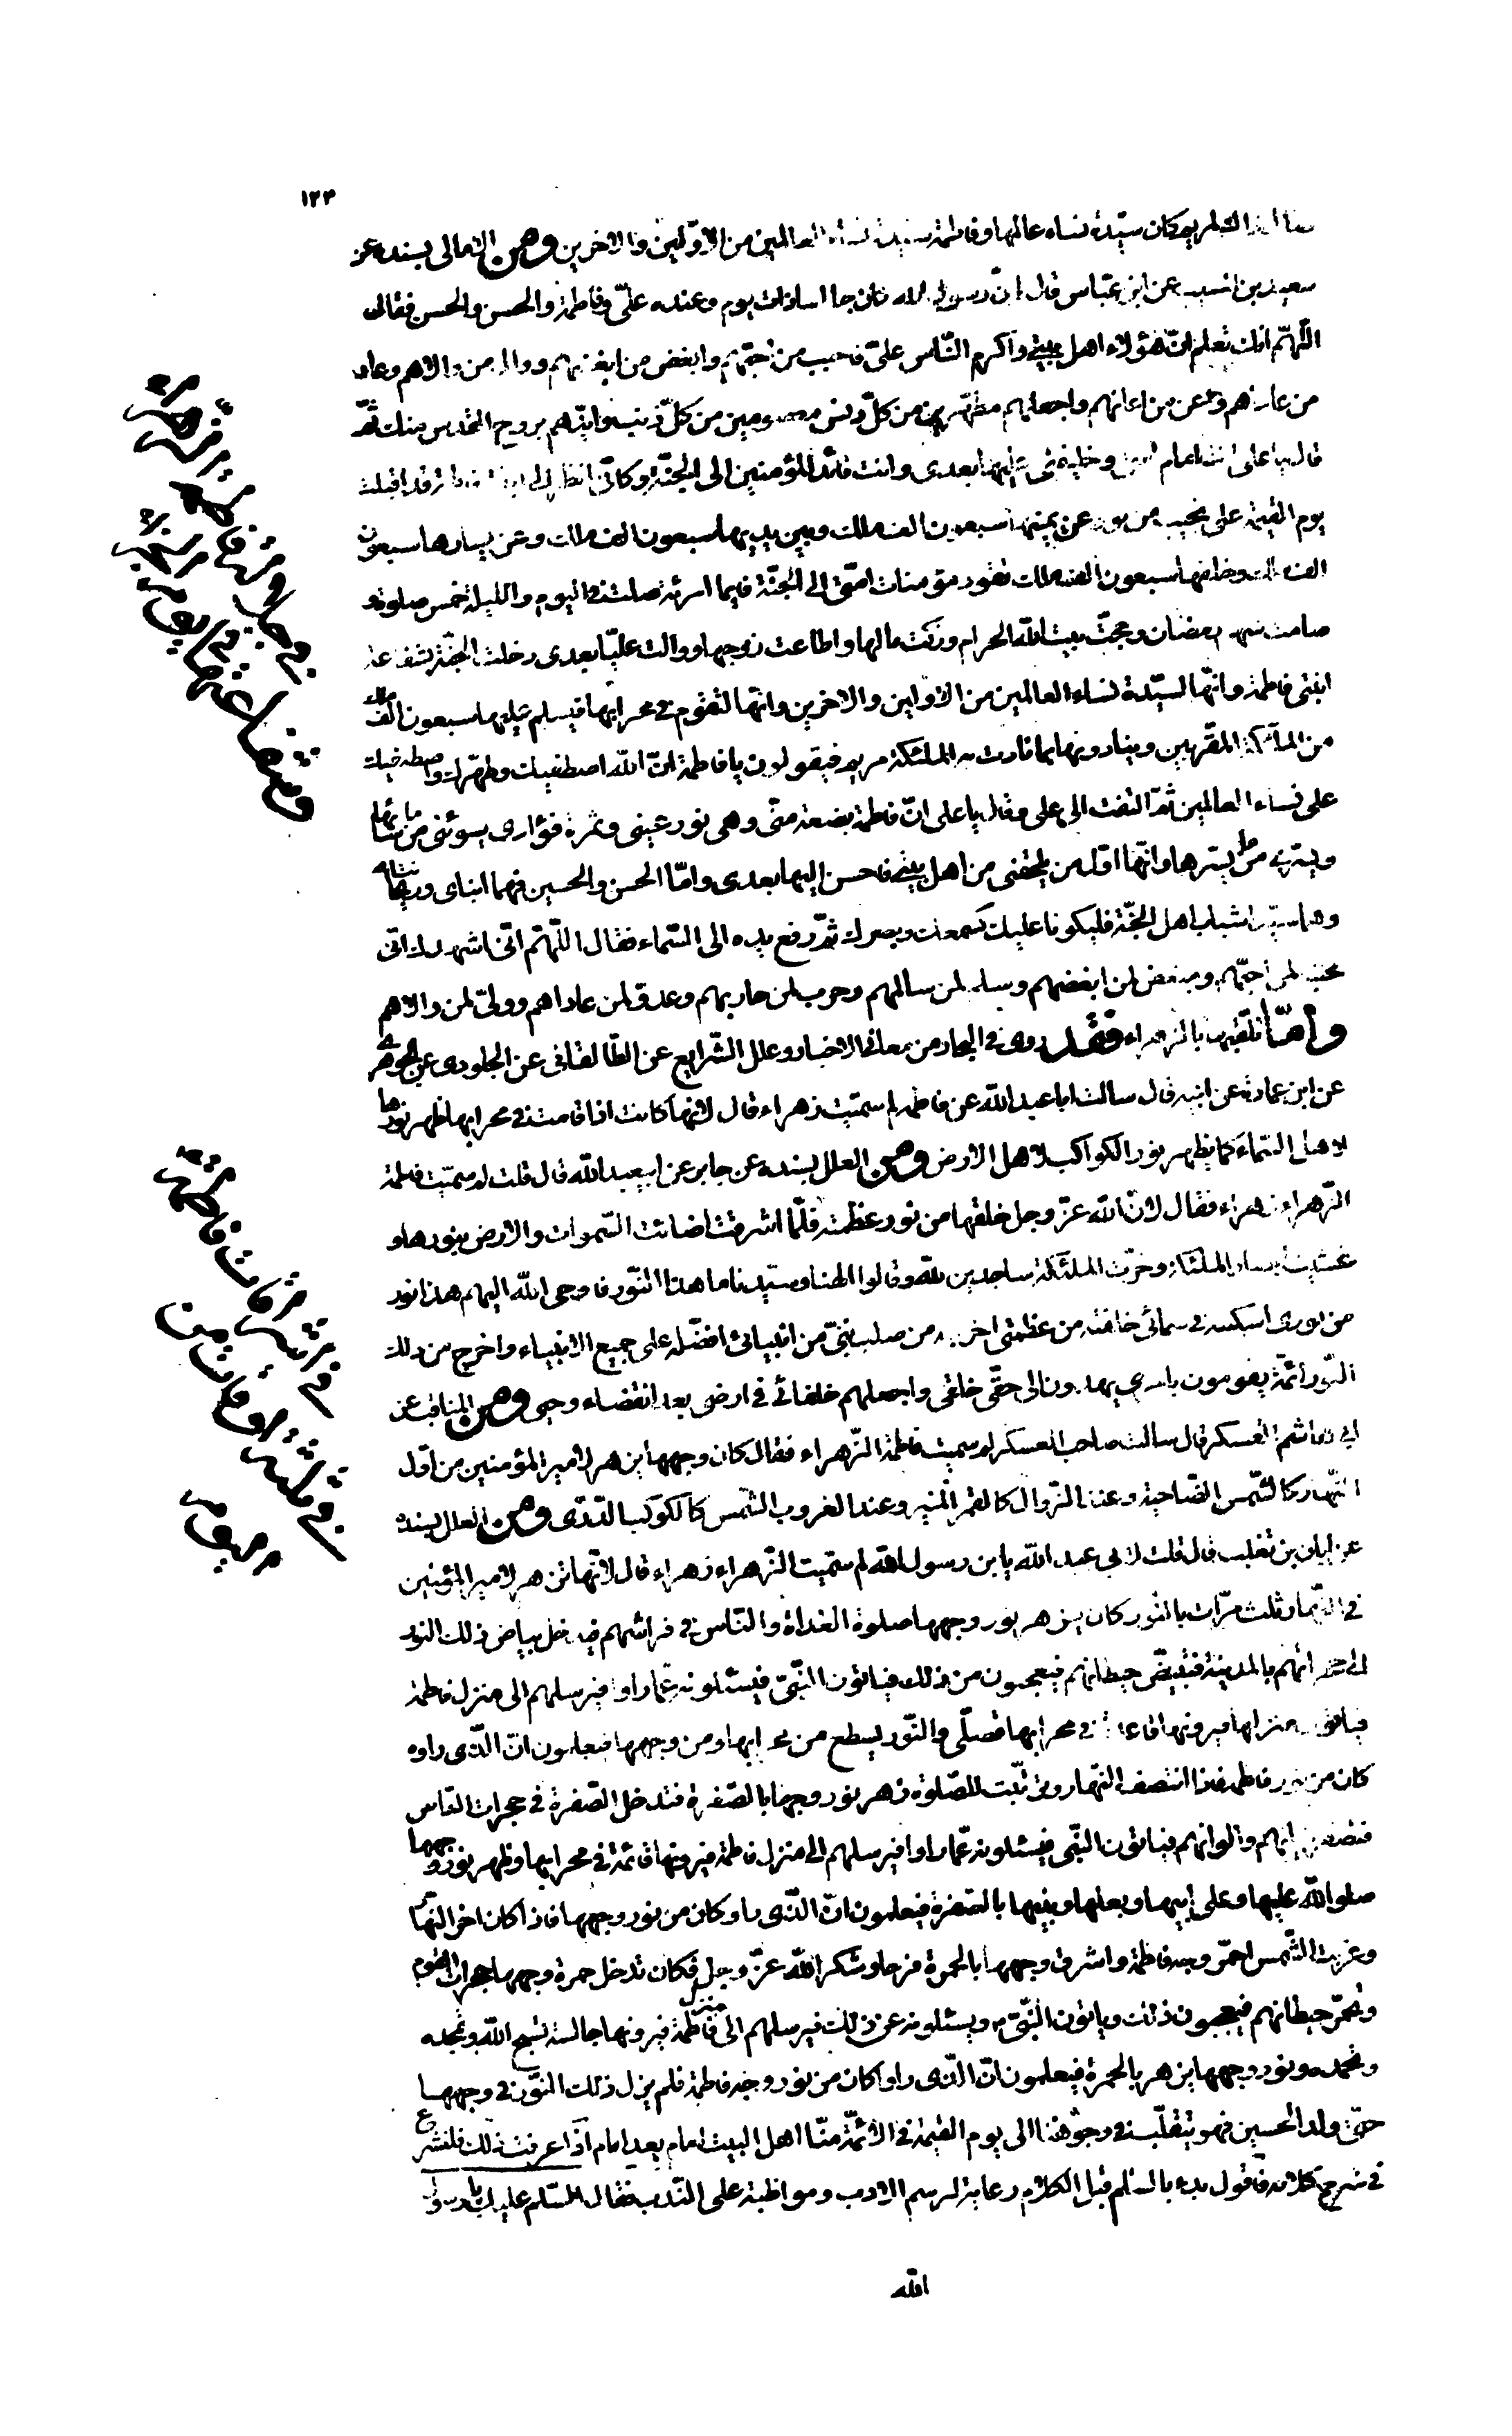 ١٢٣
لمريم كان سيّدة نساء عالمها وفاطمة سيدة نساء العالمين من الاوّلين والاخرين ومن الامالى بسنده عن
سعيد بن المسيب عن ابن عباس قال انّ رسول الله كان جالسا ذات يوم وعنده علىّ وفاطمة والحسن والحسين فقال
اللّهمّ انك تعلم انّ هؤلاء اهل بيتى واكرم النّاس علىّ فاحبب من احبّهم وابغض من ابغضهم ووال من والاهم وعاد
من عاداهم واعن من اعانهم واجعلهم مطهّرين من كلّ دنس معصومين من كلّ ذنب وايّدهم بروح القدس منك ثمّ
قال يا على انت امام امتى وخليفتى عليها بعدى وانت قائد المؤمنين الى الجنّة وكانّى انظر الى ابنتى فاطمة قد اقبلت
يوم القيمة على نجيب من نور عن يمينها سبعون الف ملك وبين يديها سبعون الف ملك وعن يسارها سبعون
الف ملك وخلفها سبعون الف ملك تقود مؤمنات امّتى الى الجنّة فايما امرئة صلت فى اليوم والليلة خمس صلوة و
صامت شهر رمضان وحجّت بيت الله الحرام وزكت مالها واطاعت زوجها ووالت عليّا بعدى دخلت الجنّة بشفاعة
ابنتى فاطمة وانّها لسيّدة نساء العالمين من الاوّلين والاخرين وانّها لتقوم فى محرابها فيسلم عليها سبعون الف ملك
من الملئكة المقرّبين وينادونها بما نادت به الملئكة مريم فيقولون يا فاطمة انّ الله اصطفيك وطهّرك واصطفيك
على نساء العالمين ثمّ التفت الى على وقال يا على انّ فاطمة بضعة منّى وهى نور عينى وثمرة فؤادى يسوئنى ما سائها
ويسرنى ما يسرها وانّها اوّل من يلحقنى من اهل بيتى فاحسن اليها بعدى وامّا الحسن والحسين فهما ابناى وريحانتاى
وهما سيّدا شباب اهل الجنّة فليكونا عليك كسمعك وبصرك ثمّ رفع يده الى السّماء فقال اللّهمّ انّى اشهدك انّى
محبّ لمن احبّهم ومبغض لمن ابغضهم وسلم لمن سالمهم وحرب لمن حاربهم وعدوّ لمن عاداهم وولىّ لمن والاهم
وامّا تلقّبها بالزهراء فقد روى فى البحار من معانى الاخبار وعلل الشّرايع عن الطّالقانى عن الجلودى عن الجوهرى
عن ابن عمارة عن ابيه قال سالت ابا عبد الله عن فاطمة لم سمّيت زهراء قال لانّها كانت اذا قامت فى محرابها ظهر نورها
لاهل السّماء كما يظهر نور الكواكب لاهل الارض ومن العلل بسنده عن جابر عن ابيعبد الله قال قلت لم سمّيت فاطمة
الزّهراء زهراء فقال لانّ الله عزّ وجل خلقها من نور عظمته فلمّا اشرقت اضائت السّموات والارض بنورها و
غشيت ابصار الملئكة وخرّت الملئكة ساجدين لله وقالوا الهنا وسيّدنا ما هذا النّور فاوحى الله اليهم هذا نور
من نورى اسكنته فى سمائى خلقته من عظمتى اخرجه من صلب نبىّ من انبيائى افضّله على جميع الانبياء واخرج من ذلك
النّور ائمّة يقومون بامرى يهدون الى حقّى خلقى واجعلهم خلفائى فى ارضى بعد انقضاء وحيى ومن المناقب عن
ابى هاشم العسكرى قال سالت صاحب العسكر لم سميت فاطمة الزّهراء فقال كان وجهها يزهر لامير المؤمنين من اوّل
النّهار كالشّمس الضّاحية وعند الزّوال كالقمر المنير وعند الغروب الشّمس كالكوكب الدّرّى ومن العلل بسنده
عن ابان بن تغلب قال قلت لابى عبد الله يا بن رسول الله لم سمّيت الزّهراء زهراء قال لانّها تزهر لامير المؤمنين
فى النّهار ثلث مرّات بالنور كان يزهر نور وجهها صلوة الغداة والنّاس فى فراشهم فيدخل بياض ذلك النور
الى حجراتهم بالمدينة فتبيضّ حيطانهم فيعجبون من ذلك فياتون النّبىّ فيسئلونه عمّا راوا فيرسلهم الى منزل فاطمة
فياتون منزلها فيرونها قاعدة فى محرابها تصلّى والنّور يسطع من محرابها ومن وجهها فيعلمون انّ الّذى راوه
كان من نور فاطمة فاذا انتصف النّهار وترتّبت للصّلوة زهر نور وجهها بالصّفرة فتدخل الصّفرة فى حجرات النّاس
فتصفر ثيابهم والوانهم فياتون النّبى فيسئلونه عمّا راوا فيرسلهم الى منزل فاطمة فيرونها قائمة فى محرابها وظهر نور وجهها
صلوات الله عليها وعلى ابيها وبعلها وبنيها بالصّفرة فيعلمون انّ الّذى راو كان من نور وجهها فاذا كان اخر النّهار
وغربت الشّمس احمرّ وجه فاطمة واشرق وجهها بالحمرة فرحا وشكرا لله عزّ وجل فكان تدخل حمرة وجهها حجرات القوم
وتحمرّ حيطانهم فيعجبون ذلك وياتون النّبىّ ويسئلونه عن ذلك فيرسلهم الى منزل فاطمة فيرونها جالسة تسبح الله وتمجده
وتحمده ونور وجهها يزهر بالحمرة فيعلمون انّ الّذى راوا كان من نور وجه فاطمة فلم يزل ذلك النّور فى وجهها
حتّى ولد الحسين فهو يتقلّب فى وجوهنا الى يوم القيمة فى الائمّة منّا اهل البيت امام بعد امام اذا عرفت ذلك فلنشرع
فى شرح كلامه فاقول بدء بالسّلام قبل الكلام رعاية لرسم الادب ومواظبة على النّدب فقال السّلام عليك يا رسول
الله